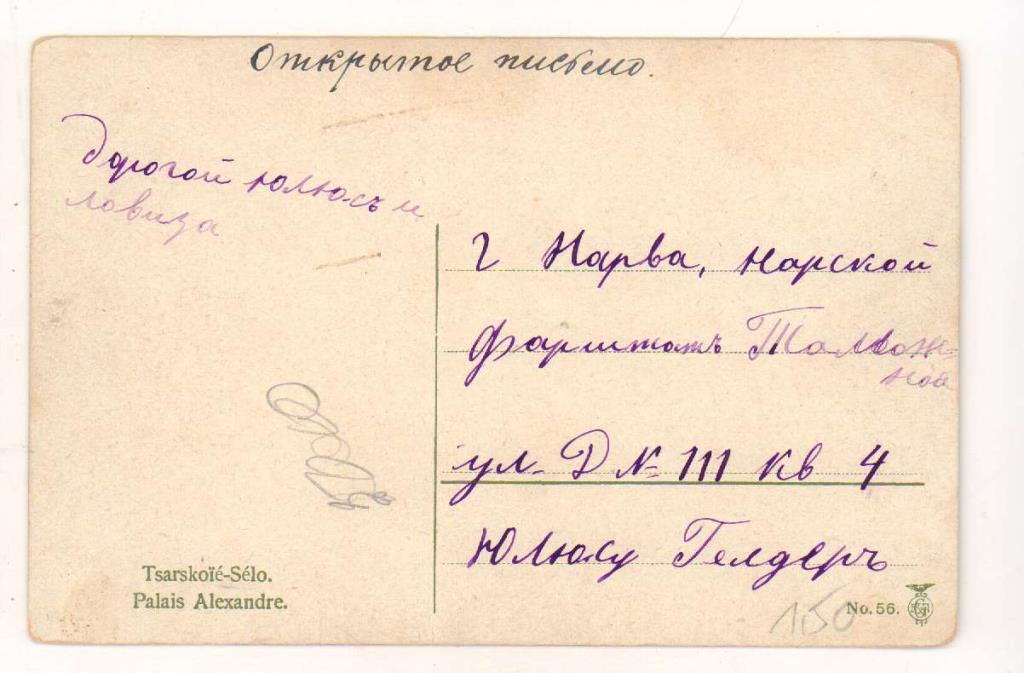 Открытое письмо.
Дорогой Юлюсъ и
Ловиза
г Нарва, нарской
фарштатъ
ная
ул. Д № 111 кв 4
Юлюсу Гелдеръ
Tsarskoïé-Sélo.
Palais Alexandre.
No. 56.
150